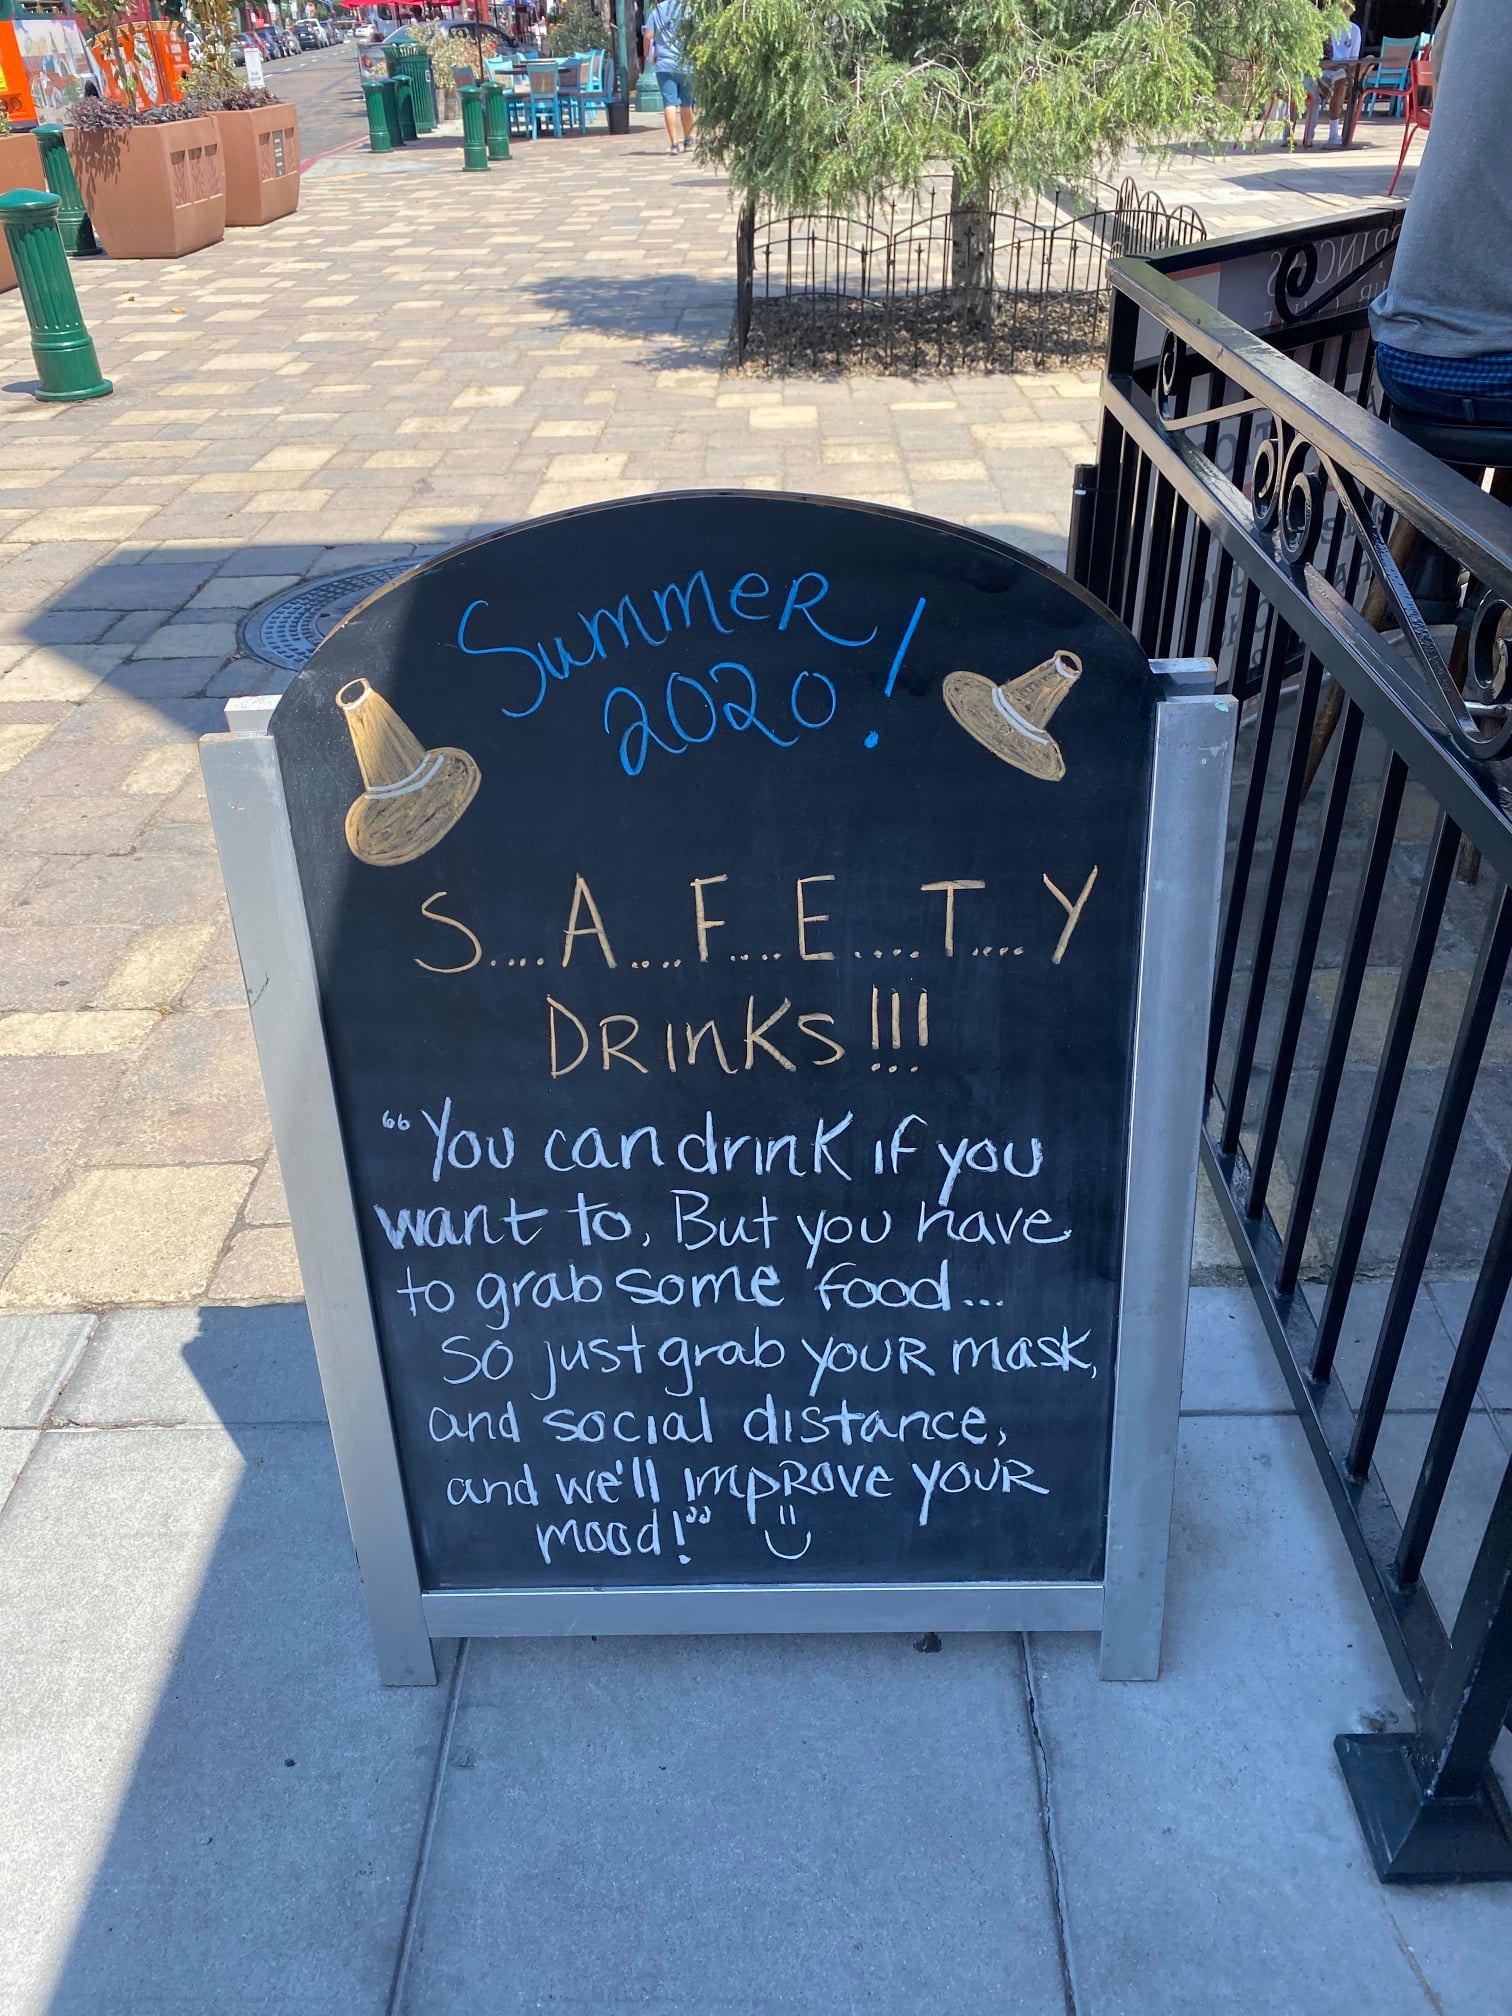 Summer
2020!
S....A....F....E....T....Y
DRinKs!!!
“You can drink if you
want to, But you have
to grab some food...
So just grab youR mask,
and social distance,
and we'll impRove youR
mood!”